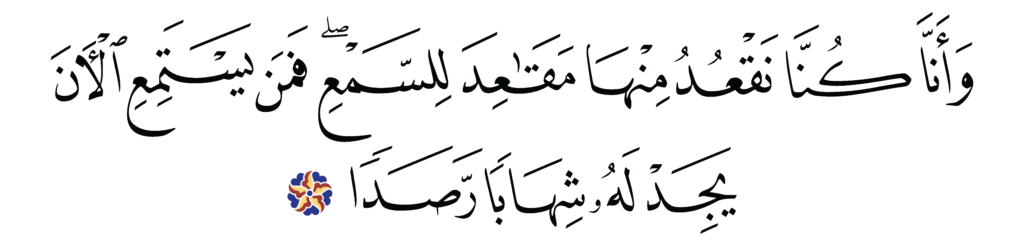 وَأَنَّا كُنَّا نَقْعُدُ مِنْهَا مَقَٰعِدَ لِلسَّمْعِ ۖ فَمَن يَسْتَمِعِ ٱلْأَنَ
يَجِدْ لَهُۥ شِهَابًا رَّصَدًا